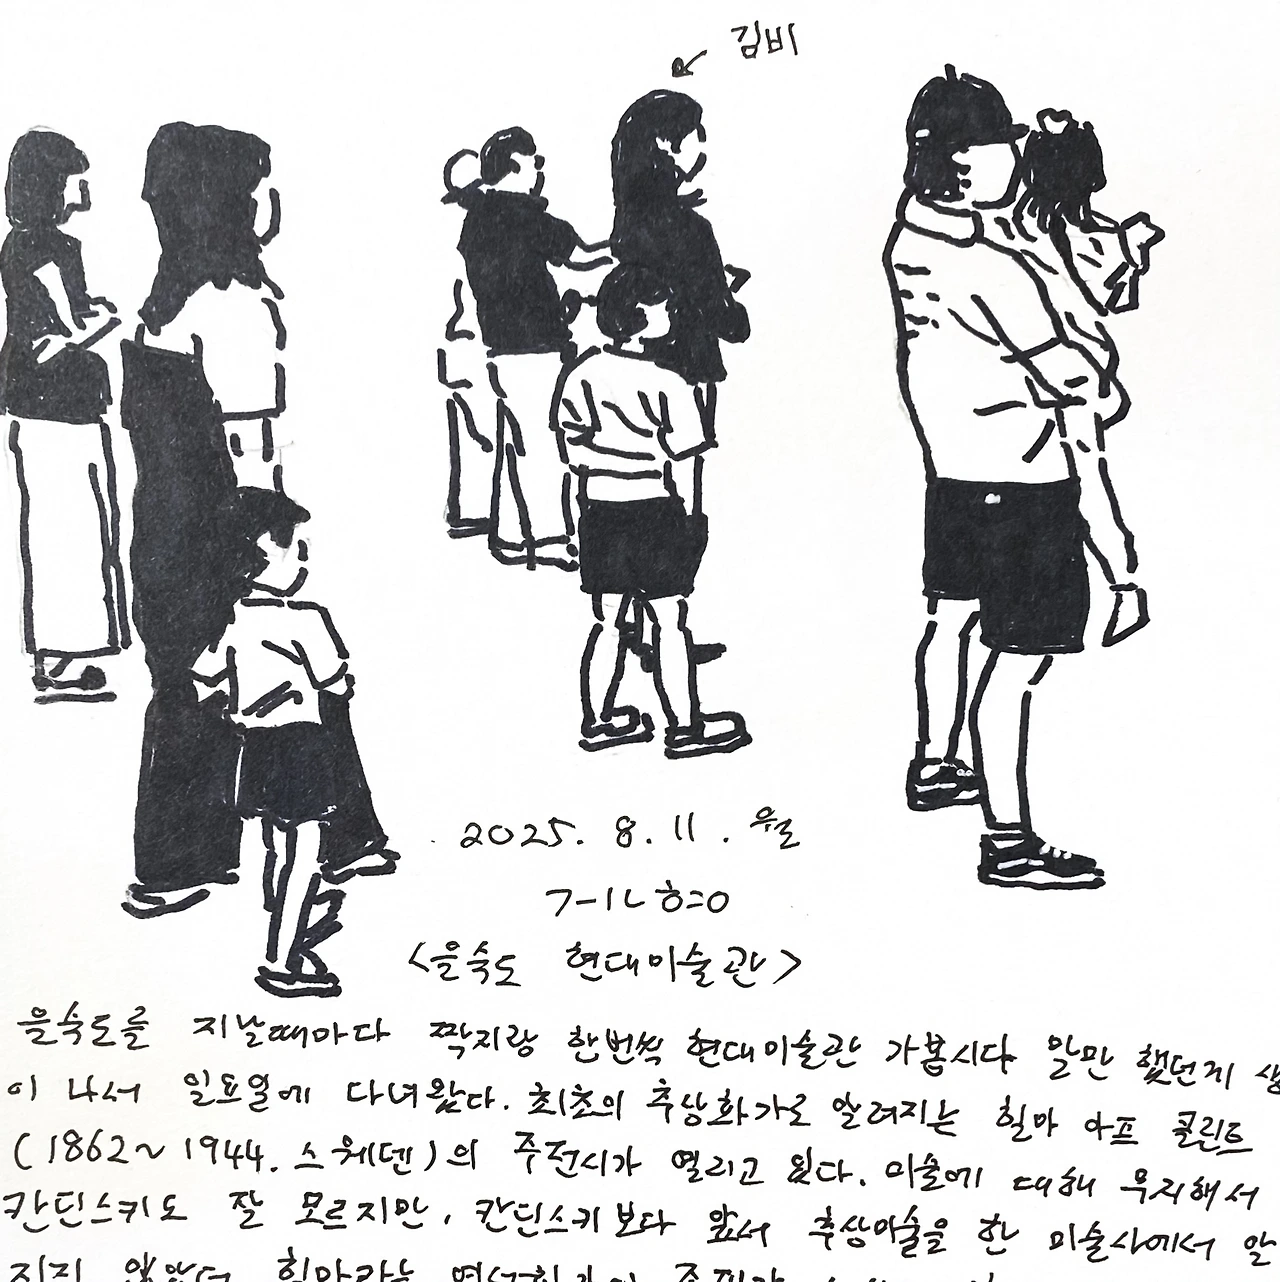 김비
2025. 8. 11. 월
기나ㄴ흐ㄹ
<을숙도 현대미술관>
을숙도를 지날때마다 짝지랑 한번씩 현대미술관 가봅시다 말만 했던게 생
이 나서 일요일에 다녀왔다. 최초의 추상화가로 알려지는 힐마 아프 클린트
(1862~1944. 스웨덴)의 주전시가 열리고 있다. 미술에 대해 무지해서
칸딘스키도 잘 모르지만, 칸딘스키보다 앞서 추상미술을 한 미술사에서 알
지지 않았던 힐마라는